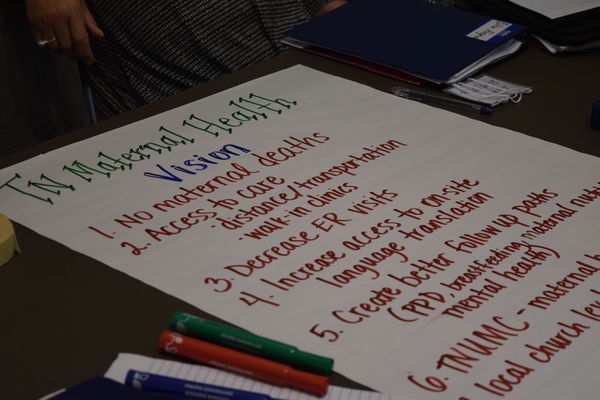 TN Maternal Health
Vision
1. No maternal deaths
2. Access to care
· distance/transportation
· walk-in clinics
3. Decrease ER visits
4. Increase access to on-site
language translation
5. Create better follow up paths
(PPD, breastfeeding, maternal
mental health)
6. TNUMC - maternal
local church